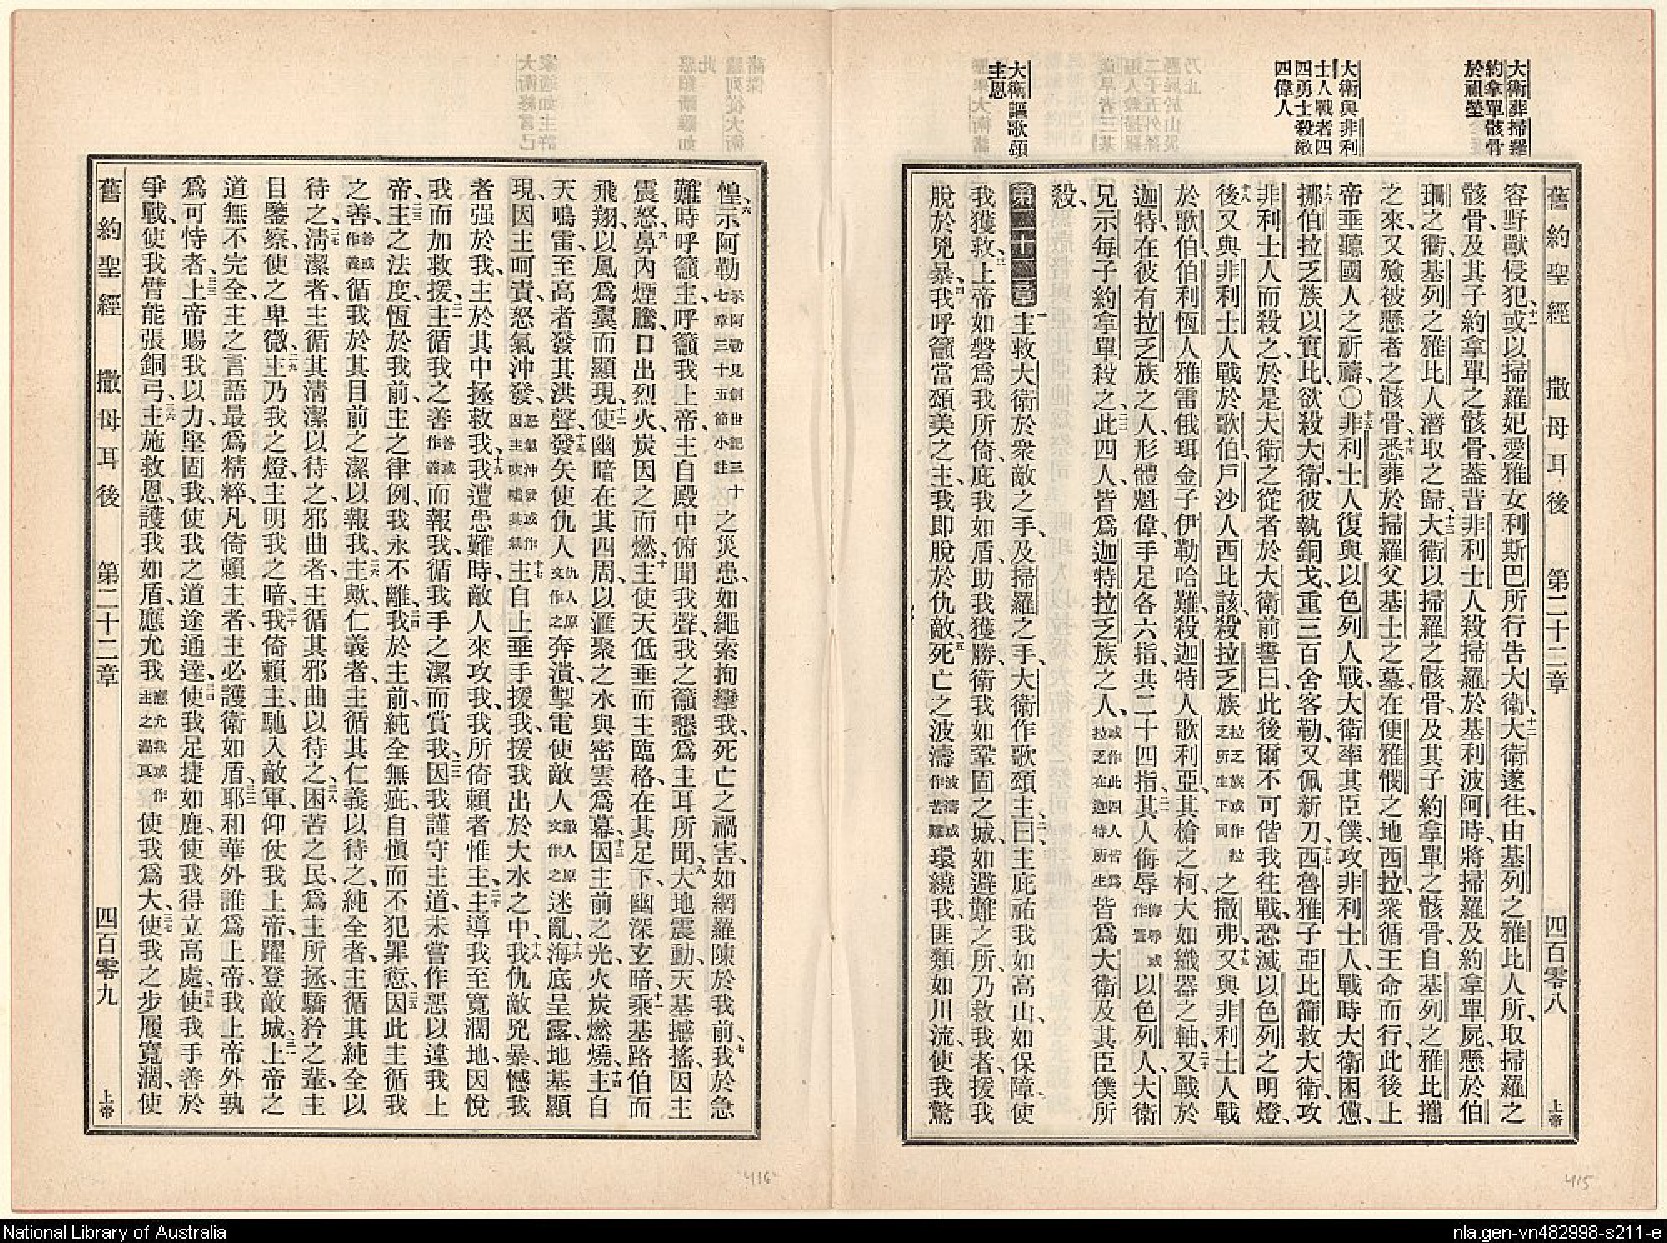 大衛葬掃羅
約拿單骸骨
於祖塋
大衛與非利
士人戰者四
四勇士殺敵
四偉人
大衛謳歌頌
主恩
舊約聖經 撒母耳後 第二十二章 四百零八 上帝
容野獸侵犯、十一或以掃羅妃愛雅女利斯巴所行告大衛、十二大衛遂往、由基列之雅比人所、取掃羅之
骸骨、及其子約拿單之骸骨、蓋昔非利士人殺掃羅於基利波阿時、將掃羅及約拿單屍懸於伯
珊之衢、基列之雅比人潛取之歸、十三大衛以掃羅之骸骨、及其子約拿單之骸骨、自基列之雅比攜
之來、又殮被懸者之骸骨、十四悉葬於掃羅父基士之墓、在便雅憫之地西拉、衆循王命而行、此後上
帝垂聽國人之祈禱、〇十五非利士人復與以色列人戰、大衛率其臣僕、攻非利士人、戰時大衛困憊、
十六挪伯拉乏族以實比、欲殺大衛、彼執銅戈、重三百舍客勒、又佩新刀、十七西魯雅子亞比篩救大衛、攻
非利士人而殺之、於是大衛之從者、於大衛前誓曰、此後爾不可偕我往戰、恐滅以色列之明燈、
十八後又與非利士人戰於歌伯、戶沙人西比該殺拉乏族拉乏族或作拉乏所生下同之撒弗、十九又與非利士人戰
於歌伯、伯利恆人雅雷俄珥金子伊勒哈難、殺迦特人歌利亞、其槍之柯、大如織器之軸、二十又戰於
迦特、在彼有拉乏族之人、形體魁偉、手足各六指、共二十四指、二一其人侮辱侮辱或作詈以色列人、大衛
兄示每子約拿單殺之、二二此四人、皆爲迦特拉乏族之人、或作此四人皆爲拉乏在迦特所生皆爲大衛及其臣僕所
殺、
第二十二章一主救大衛於衆敵之手、及掃羅之手、大衛作歌頌主、二曰、主庇祐我、如高山、如保障、使
我獲救、三上帝如磐、爲我所倚庇、我如盾、助我獲勝、衛我如鞏固之城、如避難之所、乃救我者、援我
脫於兇暴、四我呼籲當頌美之主、我即脫於仇敵、五死亡之波濤波濤或作苦難環繞我、匪類如川流、使我驚
惶、六示阿勒示阿勒見創世記三十七章三十五節小註之災患、如繩索拘攣我、死亡之禍害、如網羅陳於我前、七我於急
難時呼籲主、呼籲我上帝、主自殿中俯聞我聲、我之籲懇、爲主耳所聞、八大地震動、天基撼搖、因主
震怒、九鼻內煙騰、口出烈火、炭因之而燃、十主使天低垂而主臨格、在其足下、幽深玄暗、十一乘基路伯而
飛翔、以風爲翼而顯現、十二使幽暗在其四周、以滙聚之水與密雲爲幕、十三因主前之光、火炭燃燒、十四主自
天鳴雷、至高者發其洪聲、十五發矢使仇人仇人原文作之奔潰、掣電使敵人敵人原文作之迷亂、十六海底呈露、地基顯
現、因主呵責、怒氣沖發、怒氣沖發或作因主吹噓其氣十七主自上垂手援我、援我出於大水之中、十八我仇敵兇暴、憾我
者強於我、主於其中拯救我、十九我遭患難時、敵人來攻我、我所倚賴者惟主、二十主導我至寬濶地、因悅
我而加救援、二一主循我之善善或作義而報我、循我手之潔而賞我、二二因我謹守主道、未嘗作惡以違我上
帝、二三主之法度、恆於我前、主之律例、我永不離、二四我於主前、純全無疵、自愼而不犯罪愆、二五因此主循我
之善善或作義循我於其目前之潔以報我、二六主歟、仁義者、主循其仁義以待之、純全者、主循其純全以
待之、二七清潔者、主循其清潔以待之、邪曲者、主循其邪曲以待之、二八困苦之民、爲主所拯、驕矜之輩、主
目鑒察、使之卑微、二九主乃我之燈、主明我之暗、三十我倚賴主、馳入敵軍、仰仗我上帝、躍登敵城、三一上帝之
道、無不完全、主之言語、最爲精粹、凡倚賴主者、主必護衛如盾、三二耶和華外、誰爲上帝、我上帝外、孰
爲可恃者、三三上帝賜我以力、堅固我、使我之道途通達、三四使我足捷如鹿、使我得立高處、三五使我手善於
爭戰、使我臂能張銅弓、三六主施救恩、護我如盾、應允我、應允我或作主之溫良使我爲大、三七使我之步履寬濶、使
舊約聖經 撒母耳後 第二十二章 四百零九 上帝
416
415
National Library of Australia
nla.gen-vn482998-s211-e